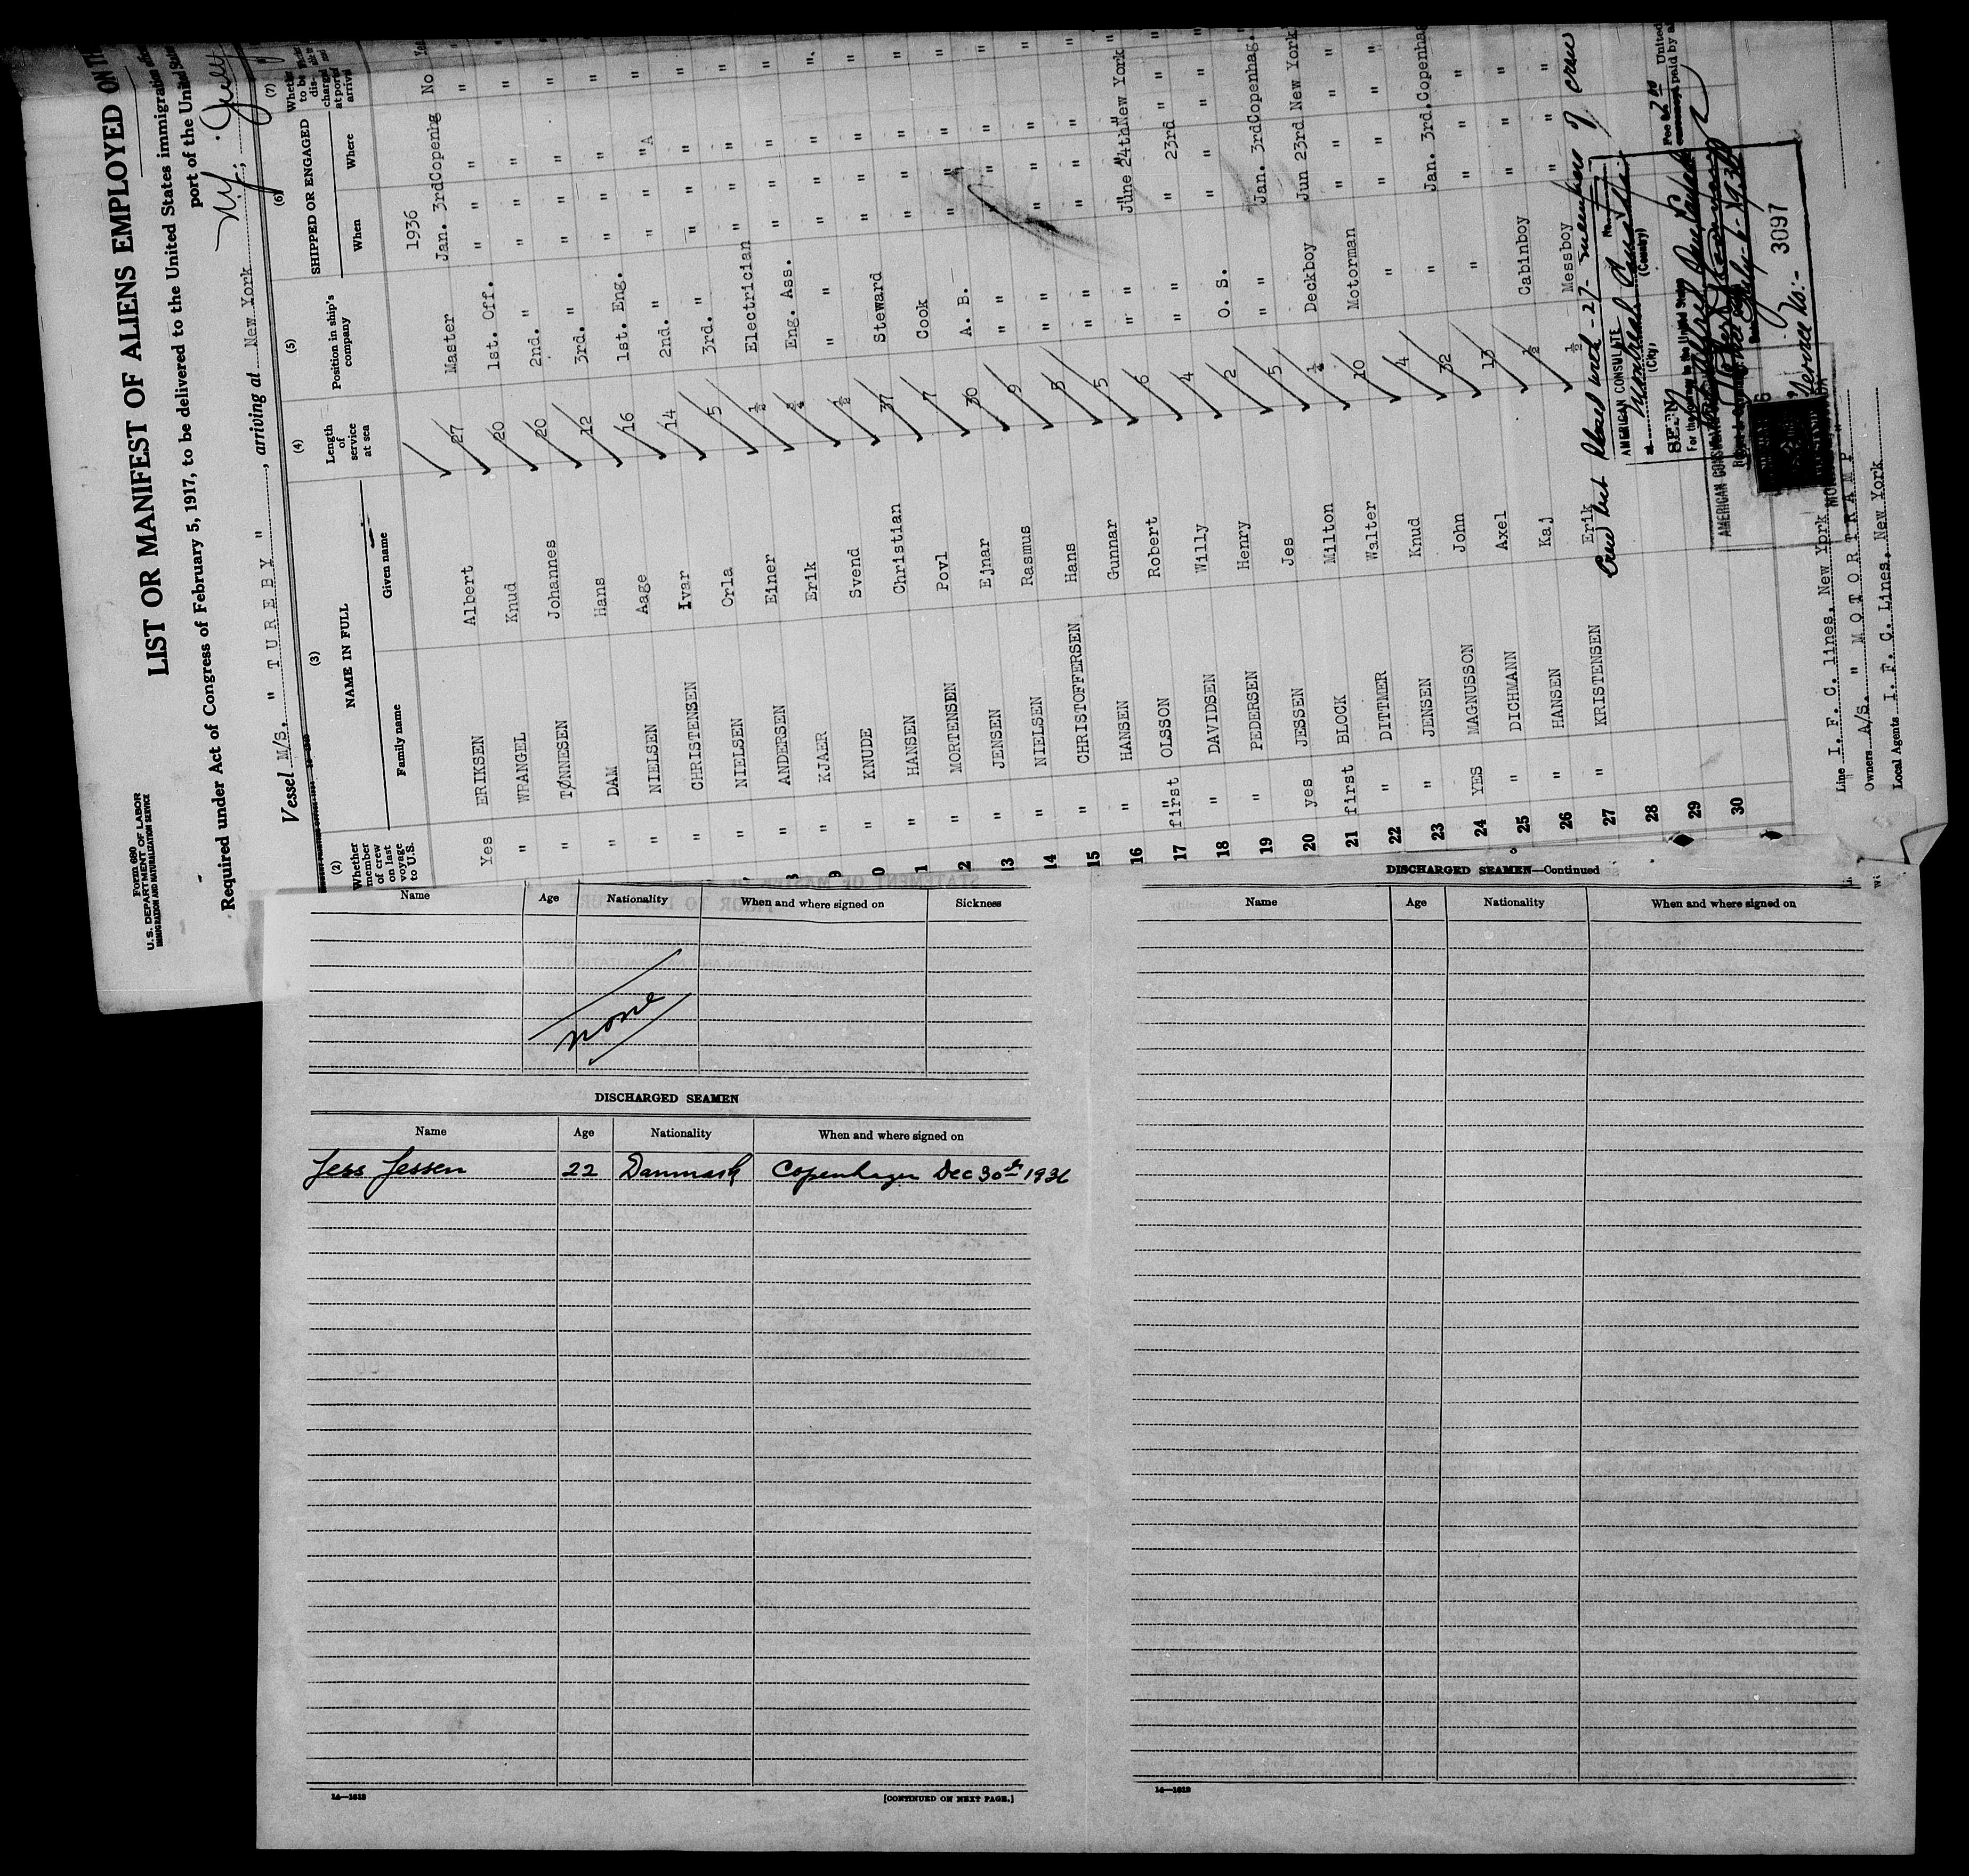 Form 680
U.S. DEPARTMENT OF LABOR
IMMIGRATION AND NATURALIZATION SERVICE
LIST OR MANIFEST OF ALIENS EMPLOYED ON TH
Required under Act of Congress of February 5, 1917, to be delivered to the United States immigration
port of the United States
Vessel M/s. " TUREBY ", arriving at New York
(2) (3) (4) (5) (6) (7)
Whether member of crew on last voyage to U.S. NAME IN FULL Length of service at sea Position in ship's company SHIPPED OR ENGAGED Whether to be discharged at port of arrival
Family name Given name When Where
1936
Yes ERIKSEN Albert 27 Master Jan. 3rd Copenhg No
" WRANGEL Knud 20 1st. Off. " " "
" TØNNESEN Johannes 20 2nd. " " " "
" DAM Hans 12 3rd. " " " "
" NIELSEN Aage 16 1st. Eng. " " "
" CHRISTENSEN Ivar 14 2nd. " " " "
" NIELSEN Orla 5 3rd. " " " "
8 " ANDERSEN Einer ½ Electrician " " "
9 " KJAER Erik Eng. Ass. " " "
0 " KNUDE Svend ½ " " " "
1 " HANSEN Christian 37 Steward " " "
2 " MORTENSEN Povl 7 Cook " " "
3 " JENSEN Ejnar 30 A. B. " " "
14 " NIELSEN Rasmus 9 " " " "
15 " CHRISTOFFERSEN Hans 8 " " " "
16 " HANSEN Gunnar 5 " " " "
17 first OLSSON Robert 6 " June 24th New York "
18 " DAVIDSEN Willy 4 " " 23rd " "
19 " PEDERSEN Henry 2 O. S. " " "
20 yes JESSEN Jes 5 " " Jan. 3rd Copenhag. "
21 first BLOCK Milton Deckboy Jun 23rd New York "
22 " DITTMER Walter 10 Motorman " " "
23 " JENSEN Knud 4 " " " "
24 YES MAGNUSSON John 32 " Jan. 3rd. Copenhag
25 " DICHMANN Axel 13 " " " "
26 " HANSEN Kaj ½ Cabinboy " " "
27 " KRISTENSEN Erik ½ Messboy " " "
28
29
30
Crew list closed with -27- members of crew
AMERICAN CONSULATE
at Montreal Canada
(City) (Country)
SEEN
For the journey to the United States
AMERICAN CONSUL
July 6-1936
Service No:- 3097
Line I. F. C. lines, New York
Owners A/s. " MOTORTRAMP "
Local Agents I. F. C. Lines, New York
Name Age Nationality When and where signed on Sickness
none
DISCHARGED SEAMEN
Name Age Nationality When and where signed on
Jess Jessen 22 Danmark Copenhagen Dec 30th 1936
14—1618
[CONTINUED ON NEXT PAGE.]
DISCHARGED SEAMEN—Continued
Name Age Nationality When and where signed on
14—1618